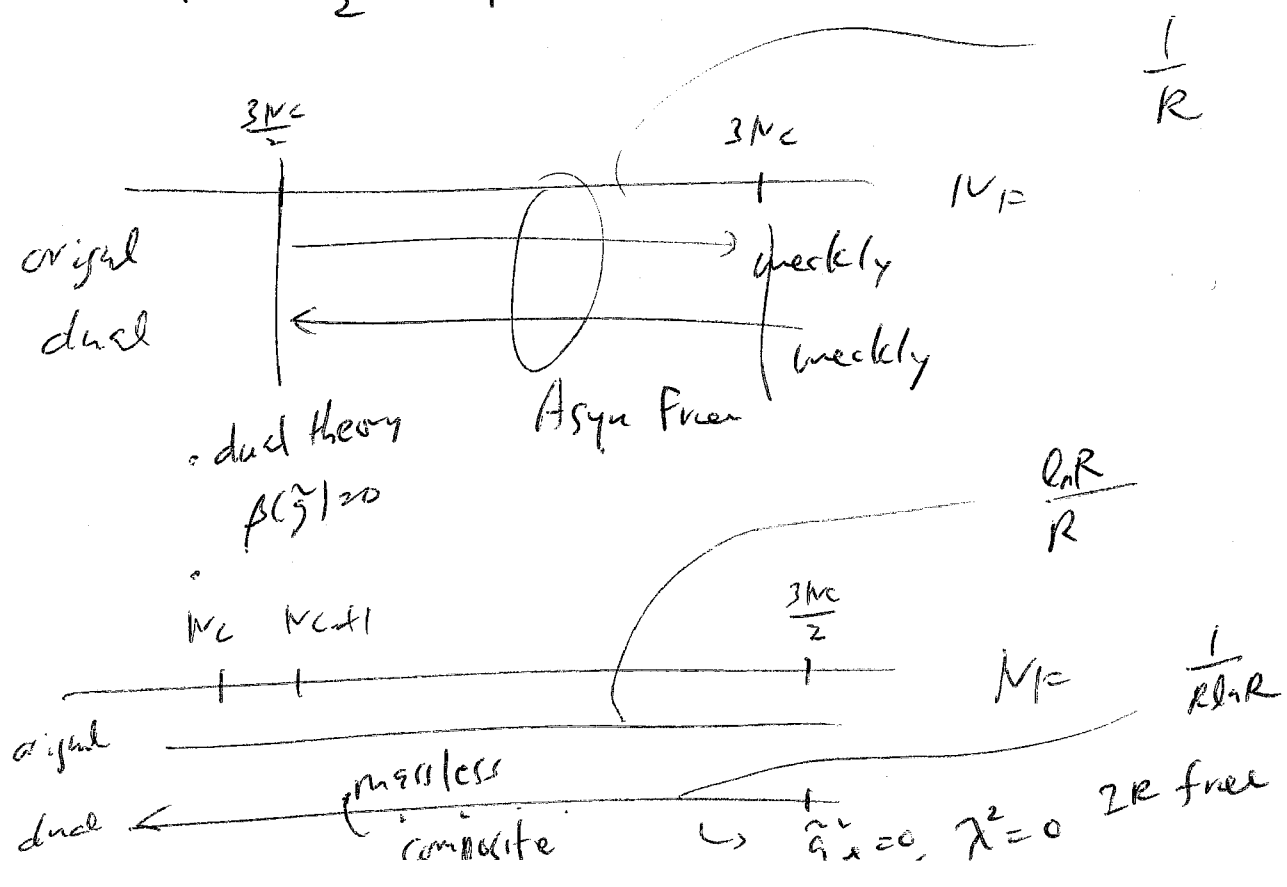 2
1/R
3Nc/2 3Nc NF
original weakly
dual weakly
Asym Free
. dual theory
β(g̃)=0
.
lnR/R
Nc Nc+1 3Nc/2 NF 1/RlnR
original
massless
dual composite ↳ g̃*²=0, λ²=0 IR free